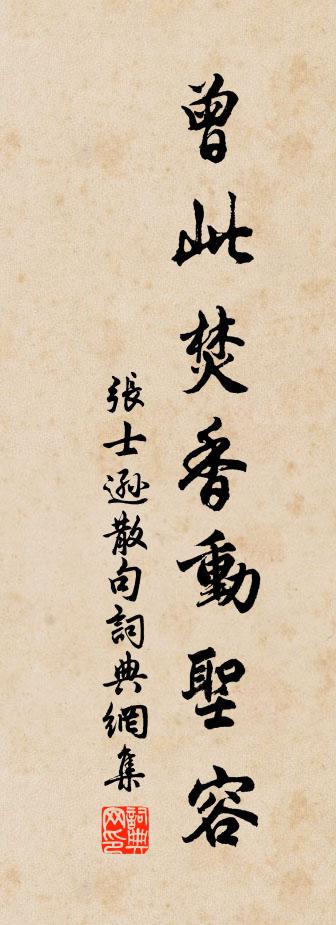 曾此焚香動聖容
張士遜散句詞典網集
詞典网印